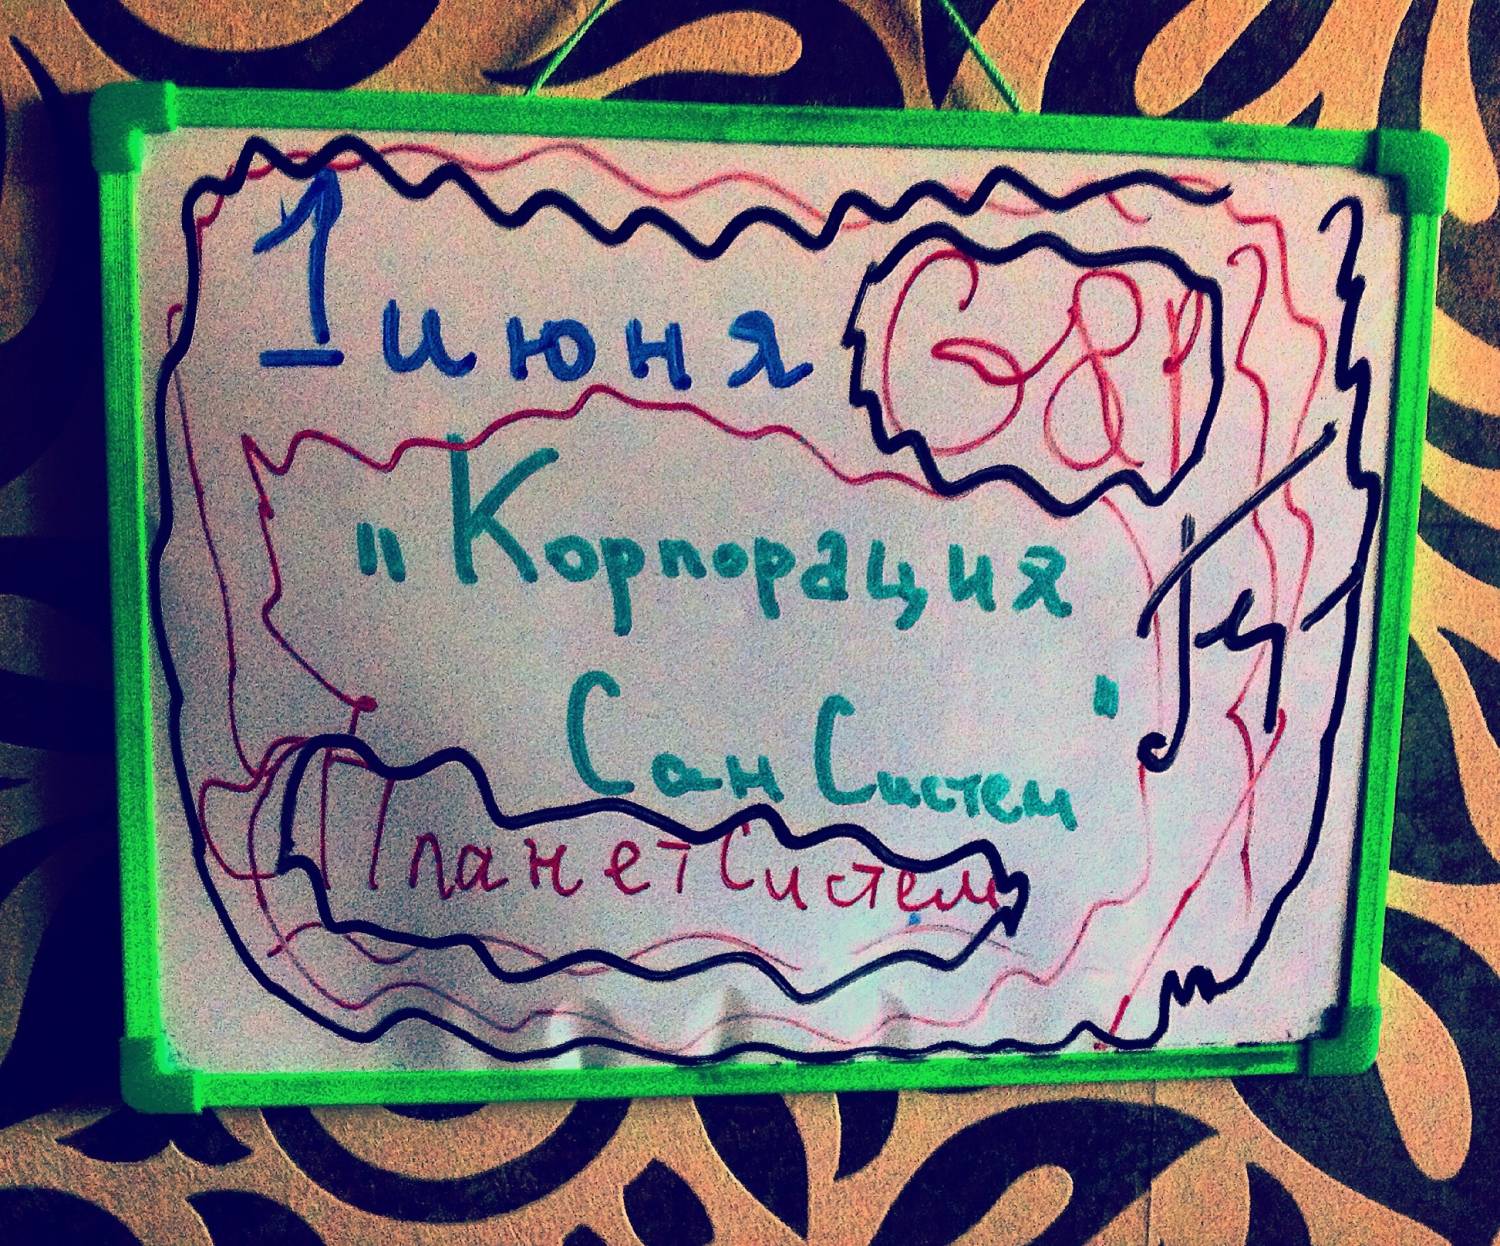 1 июня
"Корпорация
Сан Систем"
Планет Систем